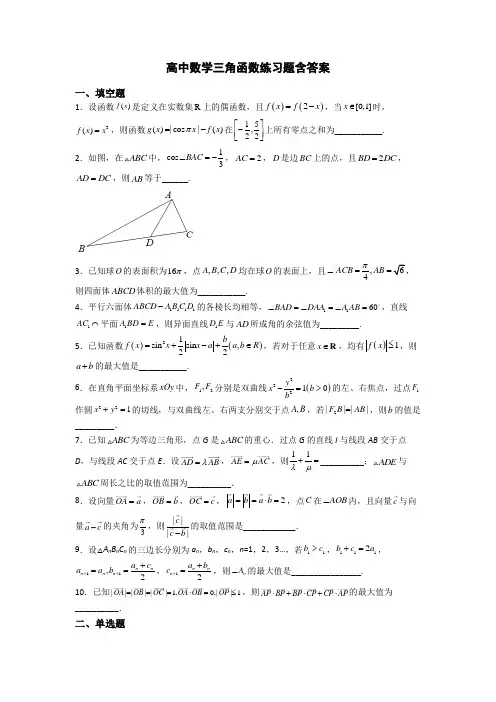 高中数学三角函数练习题含答案
一、填空题
1．设函数 f(x) 是定义在实数集 R 上的偶函数，且 f(x)=f(2-x)，当 x∈[0,1] 时，
f(x)=x³，则函数 g(x)=|cosπx|-f(x) 在 [-1/2, 5/2] 上所有零点之和为___________．
2．如图，在△ABC 中，cos∠BAC=-1/3，AC=2，D 是边 BC 上的点，且 BD=2DC，
AD=DC，则 AB 等于______．
A
B
D
C
3．已知球 O 的表面积为16π，点 A,B,C,D 均在球 O 的表面上，且∠ACB=π/4, AB=√6，
则四面体 ABCD 体积的最大值为___________．
4．平行六面体 ABCD-A₁B₁C₁D₁ 的各棱长均相等，∠BAD=∠DAA₁=∠A₁AB=60°，直线
AC₁∩平面 A₁BD=E，则异面直线 D₁E 与 AD 所成角的余弦值为_________．
5．已知函数 f(x)=sin²x+1/2 sin x-a+b/2 (a,b∈R)，若对于任意 x∈R，均有 |f(x)|≤1，则
a+b 的最大值是___________．
6．在直角平面坐标系 xOy 中，F₁,F₂ 分别是双曲线 x²-y²/b²=1(b>0) 的左、右焦点，过点 F₁
作圆 x²+y²=1 的切线，与双曲线左、右两支分别交于点 A,B，若|F₂B|=|AB|，则 b 的值是
_________．
7．已知△ABC 为等边三角形，点 G 是△ABC 的重心．过点 G 的直线 l 与线段 AB 交于点
D，与线段 AC 交于点 E．设 AD=λAB，AE=μAC，则 1/λ+1/μ=__________；△ADE 与
△ABC 周长之比的取值范围为__________．
8．设向量 OA=a，OB=b，OC=c，|a|=|b|=a·b=2，点 C 在∠AOB 内，且向量 c 与向
量 a-c 的夹角为 π/3，则 |c|/|c-b| 的取值范围是____________．
9．设△AₙBₙCₙ 的三边长分别为 aₙ，bₙ，cₙ，n=1，2，3…，若 b₁>c₁，b₁+c₁=2a₁，
aₙ₊₁=aₙ,bₙ₊₁=(aₙ+cₙ)/2，cₙ₊₁=(aₙ+bₙ)/2，则∠Aₙ 的最大值是________________．
10．已知|OA|=|OB|=|OC|=1,OA·OB=0,|OP|≤1，则 AP·BP+BP·CP+CP·AP 的最大值为
__________．
二、单选题